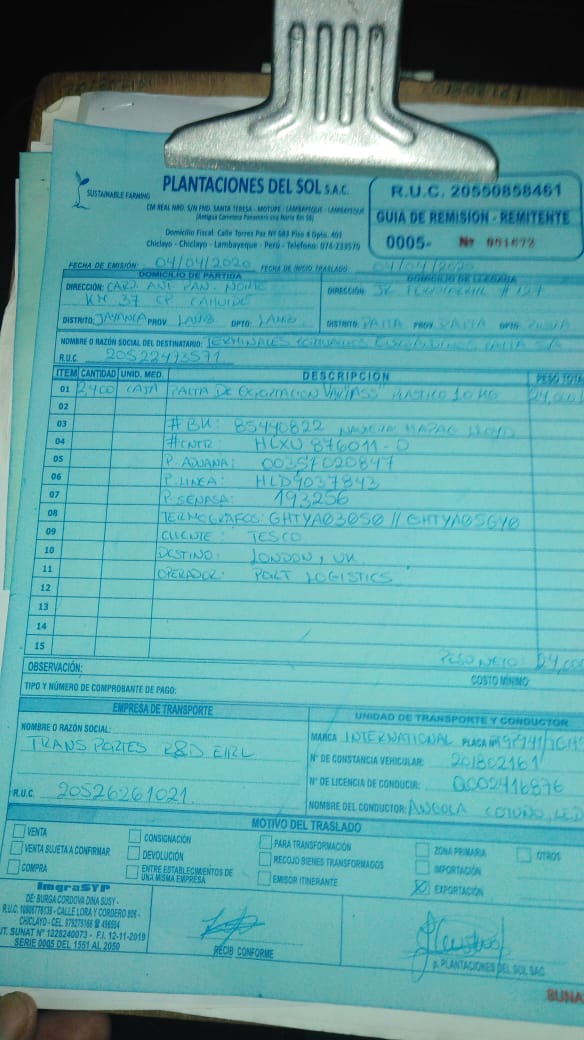 SUSTAINABLE FARMING
PLANTACIONES DEL SOL S.A.C.
CM REAL NRO. S/N FND. SANTA TERESA - MOTUPE - LAMBAYEQUE - LAMBAYEQUE
(Antigua Carretera Panamericana Norte Km 36)
Domicilio Fiscal: Calle Torres Paz Nº 683 Piso 4 Dpto. 401
Chiclayo - Chiclayo - Lambayeque - Perú - Telefono: 074-233570
R.U.C. 20550858461
GUIA DE REMISION - REMITENTE
0005- Nº 001672
FECHA DE EMISIÓN: 04/04/2020 FECHA DE INICIO TRASLADO: 04/04/2020
DOMICILIO DE PARTIDA
DIRECCIÓN: CARR. PAN. NORTE
KM 37 CP CAHUIDE
DISTRITO: JAYANCA PROV LAMB. DPTO. LAMB.
DOMICILIO DE LLEGADA
DIRECCIÓN: JR FERROCARRIL # 127
DISTRITO: PAITA PROV PAITA DPTO. PIURA
NOMBRE O RAZÓN SOCIAL DEL DESTINATARIO: TERMINALES PORTUARIOS EUROANDINOS PAITA SA
R.U.C. 20522473571
ITEM CANTIDAD UNID. MED. DESCRIPCION PESO TOTAL
01 2,400 CAJA PALTA DE EXPORTACION VAR "ASS" PLASTICO 10 KG 24,000
02
03 # BK: 85440822 NAVIERA HAPAG LLOYD
04 # CNTR: HLXU 876011-0
05 P. ADUANA: 0035F020847
06 P. LINEA: HLD9037843
07 P. SENASA: 193256
08 TERMOGRAFOS: GHTYA03050 // GHTYA05GY0
09 CLIENTE: TESCO
10 DESTINO: LONDON, UK
11 OPERADOR: PORT LOGISTICS
12
13
14
15
PESO NETO: 24,000
OBSERVACIÓN: COSTO MÍNIMO:
TIPO Y NÚMERO DE COMPROBANTE DE PAGO:
EMPRESA DE TRANSPORTE
NOMBRE O RAZÓN SOCIAL:
TRANSPORTES R&D EIRL
R.U.C. 20526261021
UNIDAD DE TRANSPORTE Y CONDUCTOR
MARCA INTERNATIONAL PLACA
Nº DE CONSTANCIA VEHICULAR: 201802161
Nº DE LICENCIA DE CONDUCIR: Q002416876
NOMBRE DEL CONDUCTOR:
MOTIVO DEL TRASLADO
VENTA
VENTA SUJETA A CONFIRMAR
COMPRA
CONSIGNACIÓN
DEVOLUCIÓN
ENTRE ESTABLECIMIENTOS DE
UNA MISMA EMPRESA
PARA TRANSFORMACIÓN
RECOJO BIENES TRANSFORMADOS
EMISOR ITINERANTE
ZONA PRIMARIA
IMPORTACIÓN
EXPORTACIÓN
OTROS
ImgraSYP
DE: BURGA CORDOVA DINA SUSY -
CALLE LORA Y CORDERO 806 -
UT. SUNAT Nº 1228240073 - F.I. 12-11-2019
SERIE 0005 DEL 1551 AL 2050
RECIBÍ CONFORME
p. PLANTACIONES DEL SOL SAC
SUNA